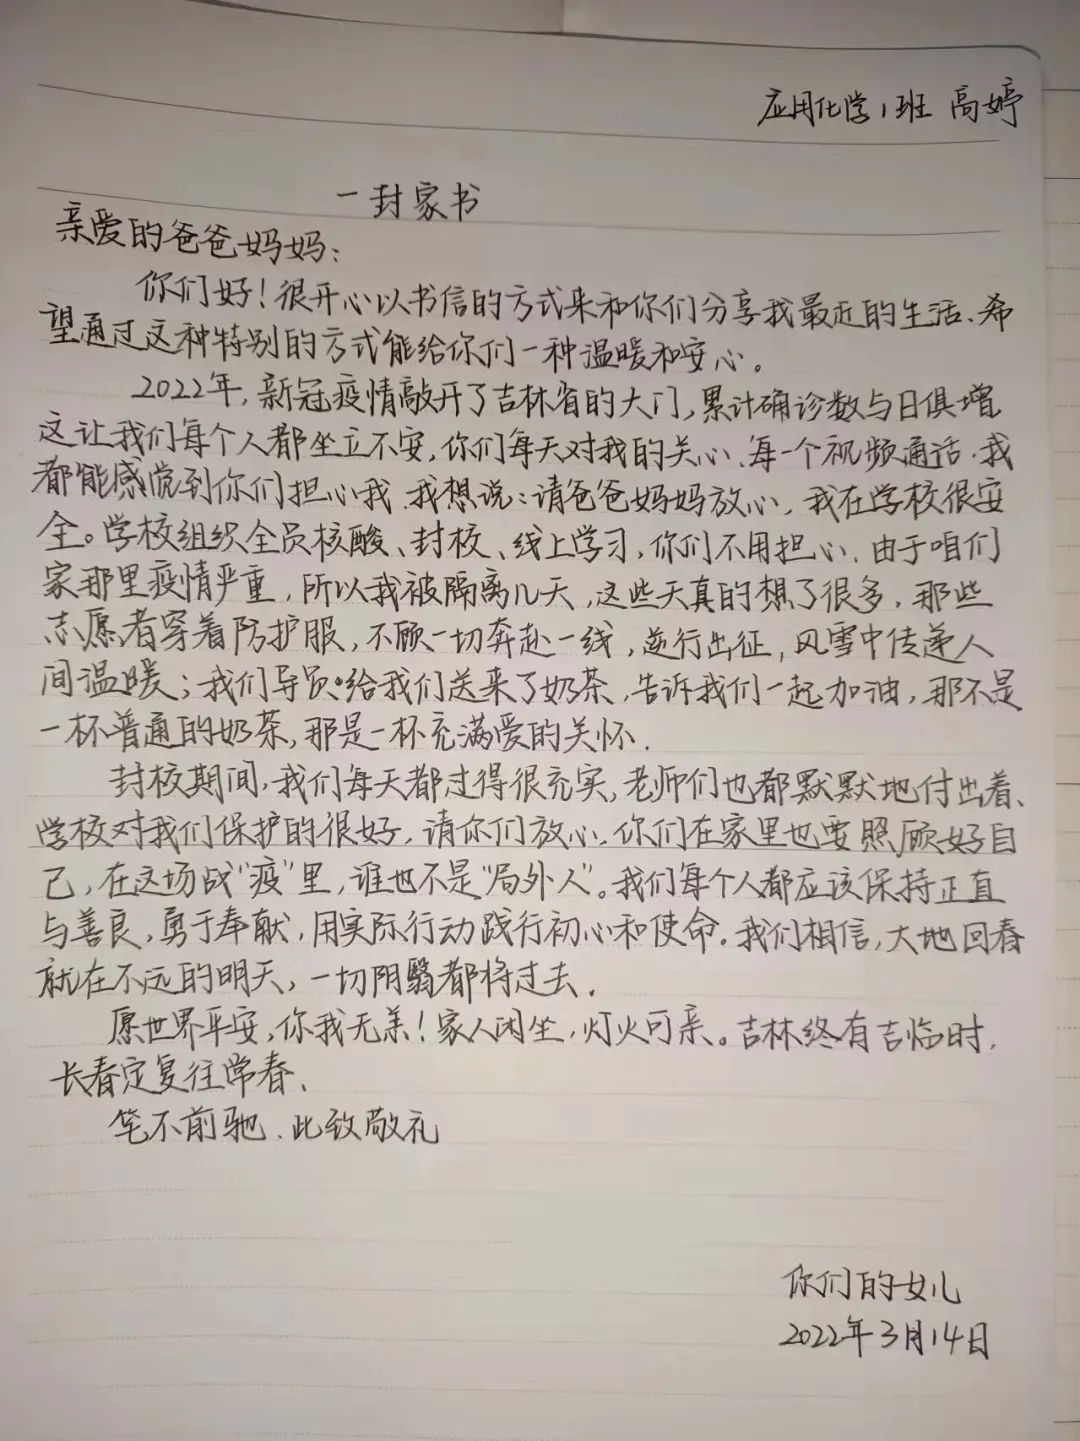 应用化学1班 高婷
一封家书
亲爱的爸爸妈妈:
你们好!很开心以书信的方式来和你们分享我最近的生活、希
望通过这种特别的方式能给你们一种温暖和安心。
2022年,新冠疫情敲开了吉林省的大门,累计确诊数与日俱增
这让我们每个人都坐立不安,你们每天对我的关心、每一个视频通话.我
都能感觉到你们担心我.我想说:请爸爸妈妈放心,我在学校很安
全。学校组织全员核酸、封校、线上学习,你们不用担心.由于咱们
家那里疫情严重,所以我被隔离几天,这些天真的想了很多,那些
志愿者穿着防护服,不顾一切奔赴一线,逆行出征,风雪中传递人
间温暖;我们导员给我们送来了奶茶,告诉我们一起加油,那不是
一杯普通的奶茶,那是一杯充满爱的关怀.
封校期间,我们每天都过得很充实,老师们也都默默地付出着、
学校对我们保护的很好,请你们放心.你们在家里也要照顾好自
己,在这场战“疫”里,谁也不是“局外人”。我们每个人都应该保持正直
与善良,勇于奉献,用实际行动践行初心和使命.我们相信,大地回春
就在不远的明天,一切阴翳都将过去.
愿世界平安,你我无恙!家人闲坐,灯火可亲。吉林终有吉临时,
长春定复往常春、
笔不前驰.此致敬礼
你们的女儿
2022年3月14日